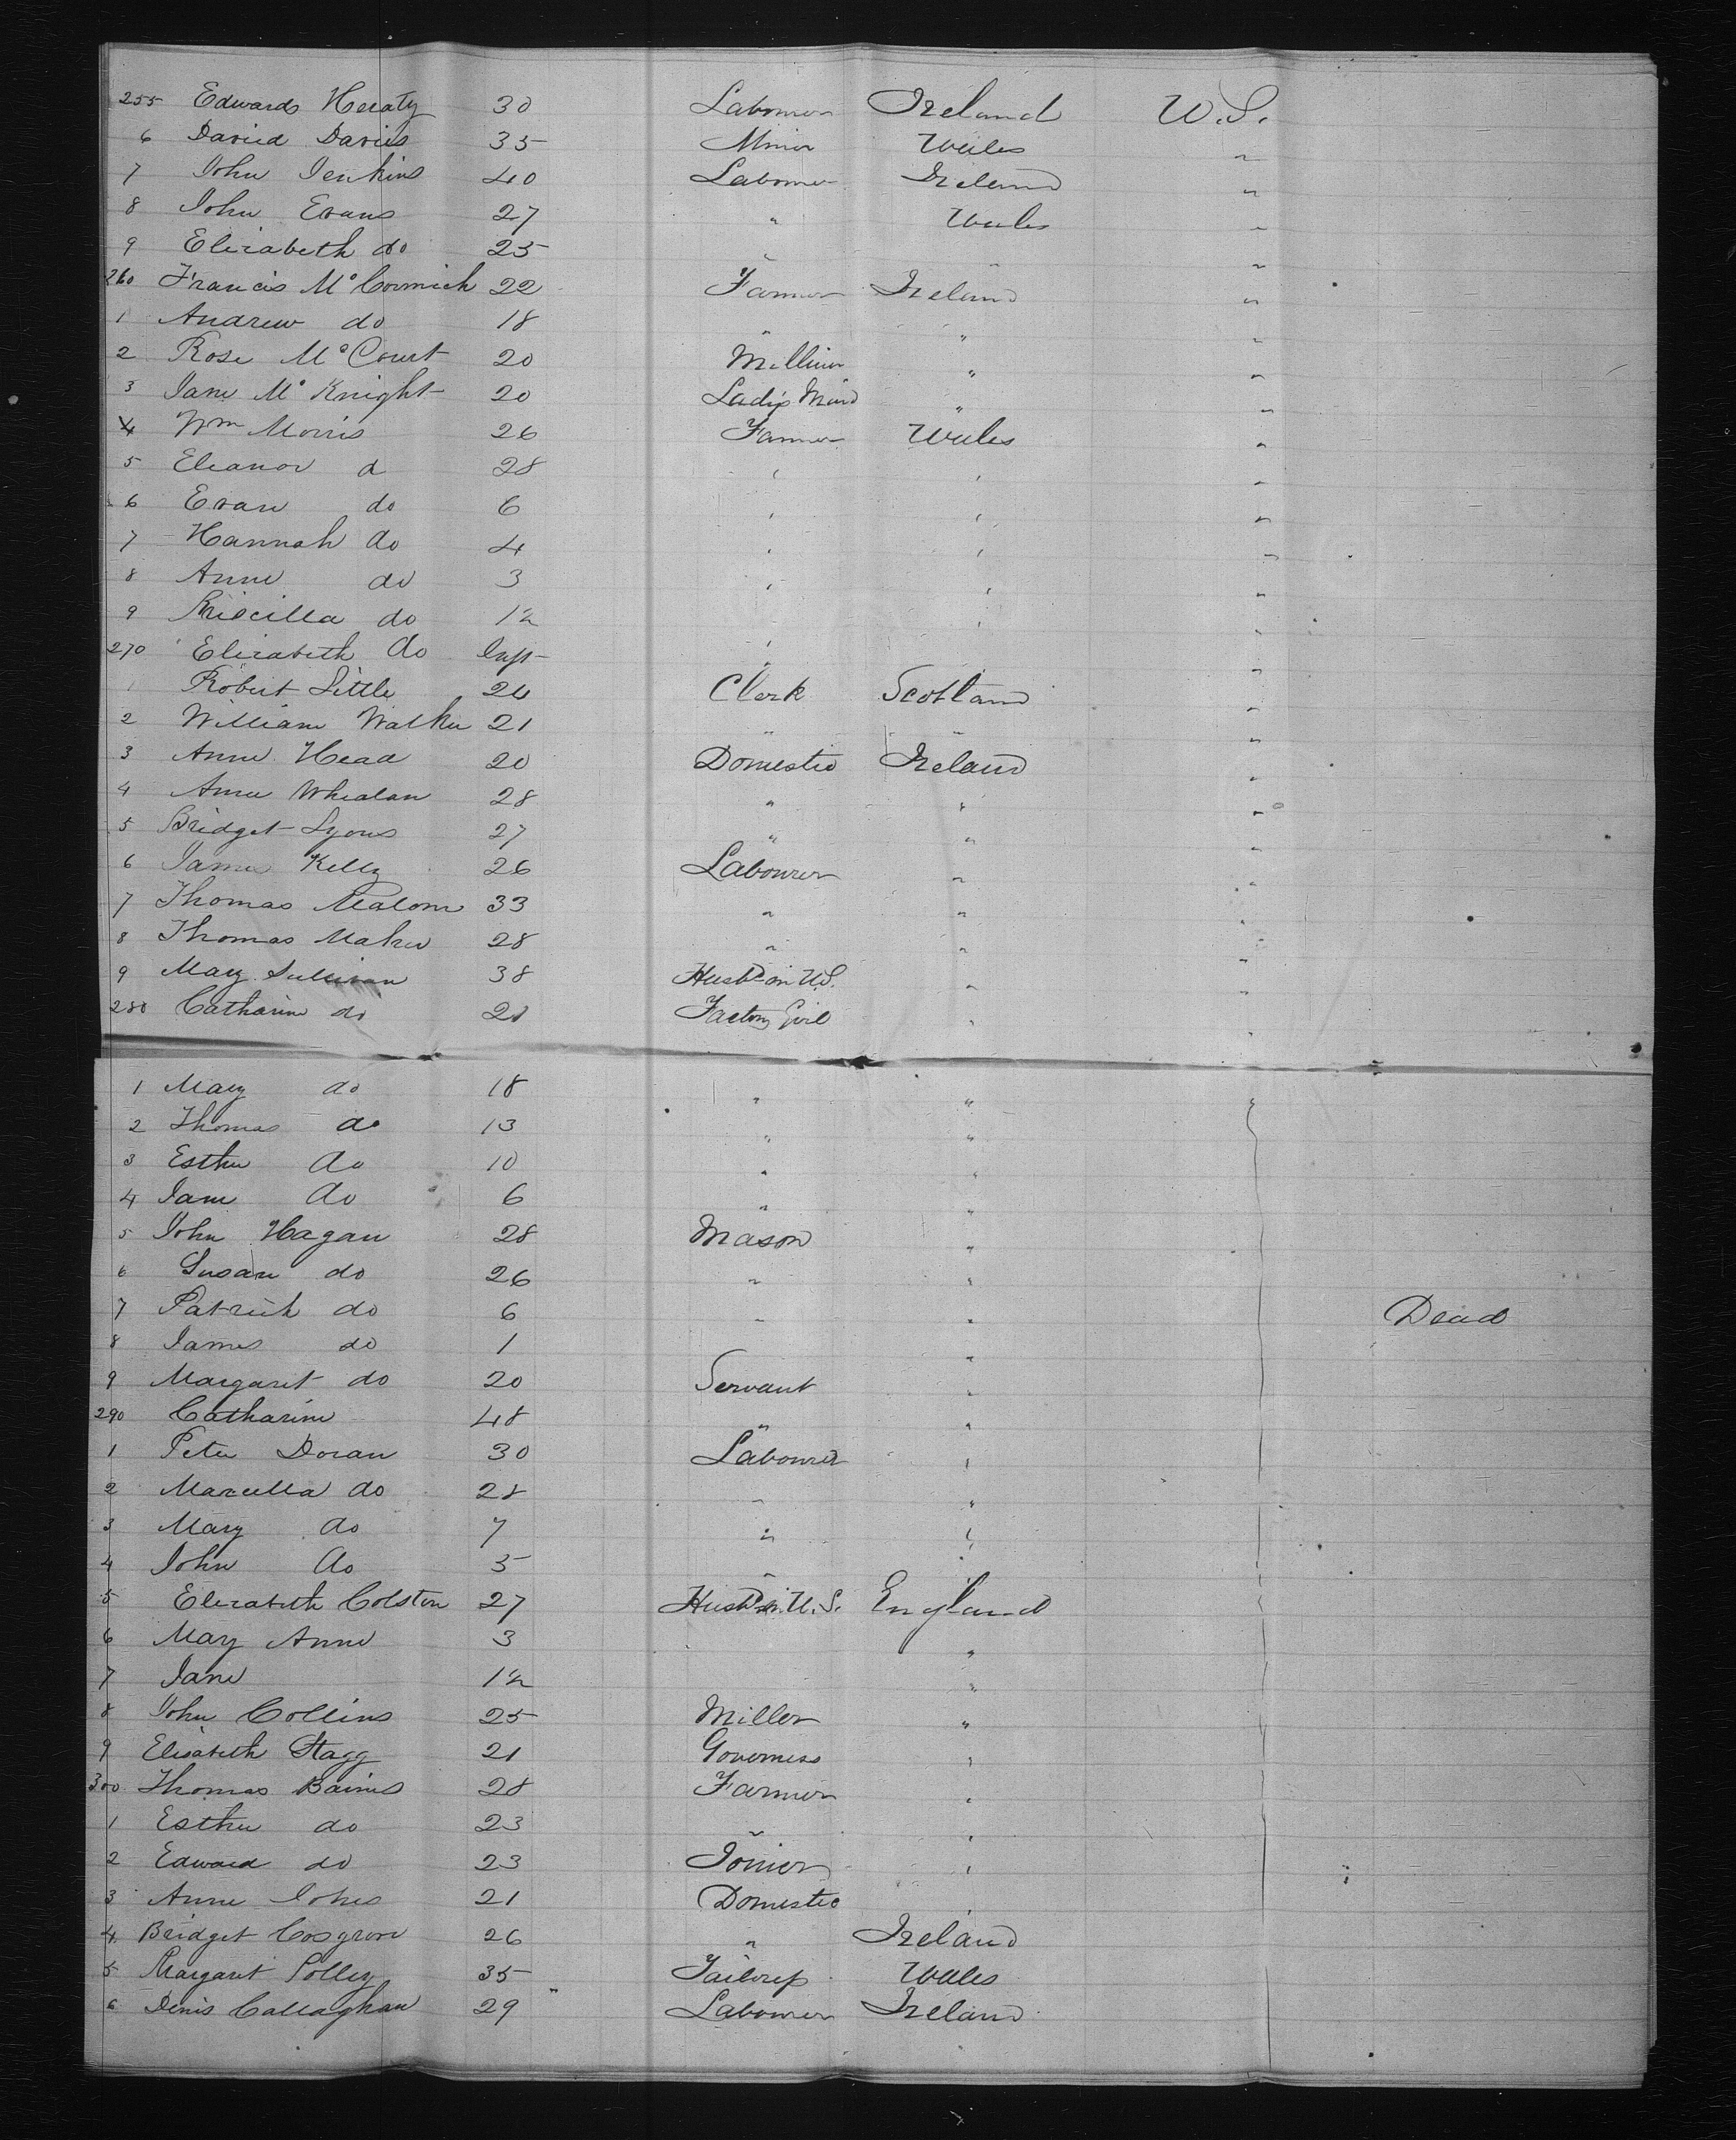 255 Edwards Heraty 30 Labourer Ireland U.S.
6 David Davis 35 Miner Wales "
7 John Jenkins 40 Labourer Ireland "
8 John Evans 27 " Wales "
9 Elizabeth do 25 " " "
260 Francis McCormick 22 Farmer Ireland "
1 Andrew do 18 " " "
2 Rose McCourt 20 Milliner " "
3 Jane McKnight 20 Ladies Maid " "
4 Wm Morris 26 Farmer Wales "
5 Eleanor d 28 " " "
6 Evan do 6 " " "
7 Hannah do 4 " " "
8 Anne do 3 " " "
9 Priscilla do 1½ " " "
270 Elizabeth do Inft " "
1 Robert Little 24 Clerk Scotland "
2 William Walker 21 " " "
3 Anne Head 20 Domestic Ireland "
4 Anne Whealan 28 " " "
5 Bridget Lyons 27 " " "
6 James Kelly 26 Labourer " "
7 Thomas Malone 33 " " "
8 Thomas Maher 28 " " "
9 Mary Sullivan 38 Husbd in U.S. " "
280 Catharine do 20 Factory Girl " "
1 Mary do 18 " " "
2 Thomas do 13 " "
3 Esther do 10 " "
4 Jane do 6 " "
5 John Hagan 28 Mason "
6 Susan do 26 " "
7 Patrick do 6 " " Dead
8 James do 1 "
9 Margaret do 20 Servant "
290 Catharine 48 " "
1 Peter Doran 30 Labourer "
2 Marcella do 28 " "
3 Mary do 7 " "
4 John do 5 " "
5 Elizabeth Colston 27 Husbd in U.S. England
6 Mary Anne 3 "
7 Jane 1½ "
8 John Collins 25 Miller "
9 Elisabeth Stagg 21 Governess "
300 Thomas Baines 28 Farmer "
1 Esther do 23 " "
2 Edward do 23 Joiner "
3 Anne Johes 21 Domestic "
4 Bridget Cosgrove 26 " Ireland
5 Margaret Polley 35 Tailoress Wales
6 Denis Callaghan 29 Labourer Ireland